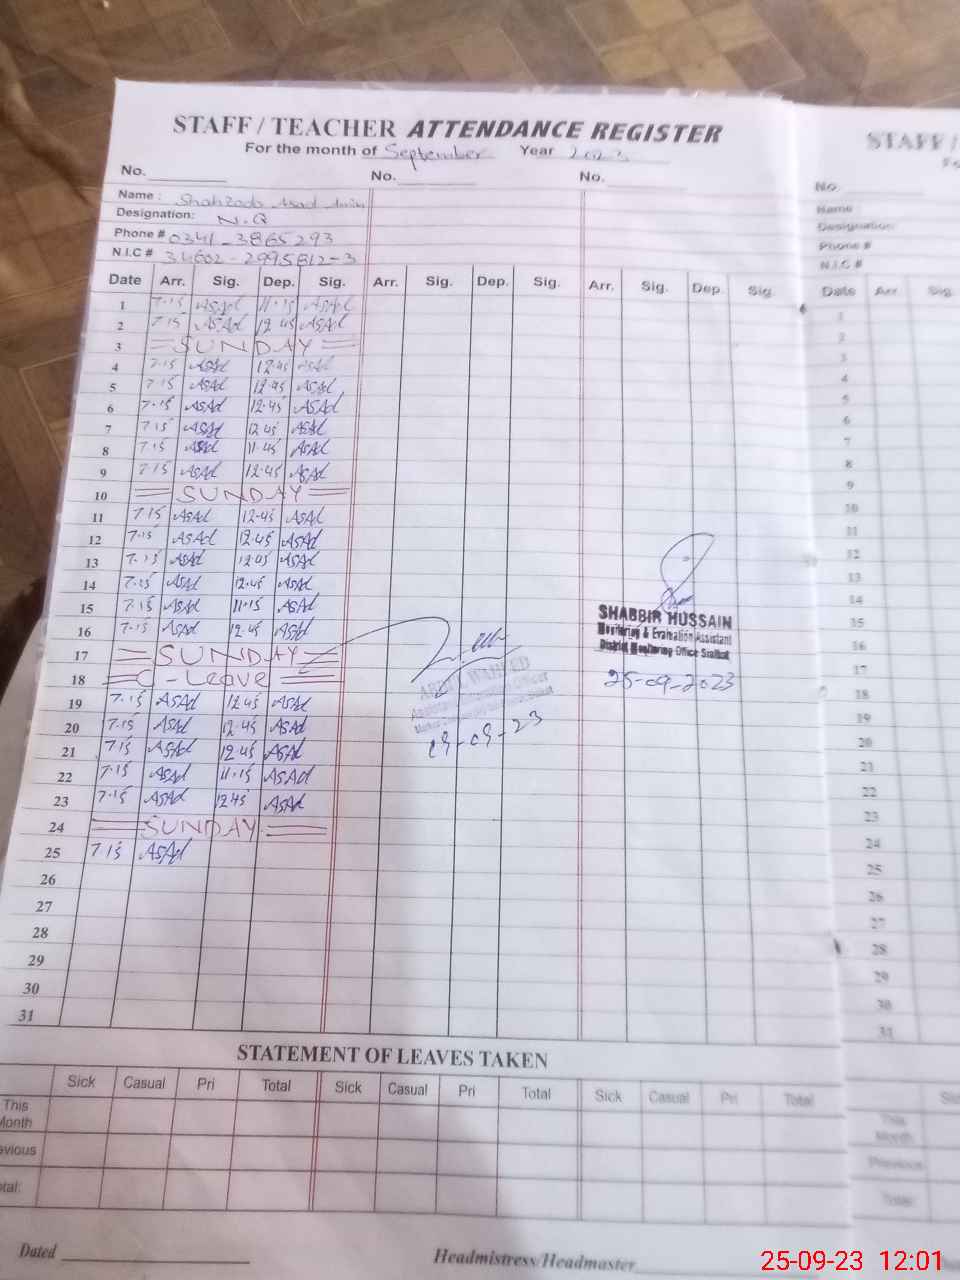 STAFF / TEACHER ATTENDANCE REGISTER
For the month of September Year 2023
No. No. No.
Name : Shahzada Asad Amin
Designation: N.Q
Phone # 0341-3865293
N.I.C # 34602-2995812-3
Date Arr. Sig. Dep. Sig. Arr. Sig. Dep. Sig. Arr. Sig. Dep. Sig.
1 7.15 ASAd 11.15 ASAd
2 7.15 ASAd 12.45 ASAd
3 SUNDAY
4 7.15 ASAd 12.45 ASAd
5 7.15 ASAd 12.45 ASAd
6 7.15 ASAd 12.45 ASAd
7 7.15 ASAd 12.45 ASAd
8 7.15 ASAd 11.45 ASAd
9 7.15 ASAd 12.45 ASAd
10 SUNDAY
11 7.15 ASAd 12.45 ASAd
12 7.15 ASAd 12.45 ASAd
13 7.15 ASAd 12.45 ASAd
14 7.15 ASAd 12.45 ASAd
15 7.15 ASAd 11.15 ASAd
16 7.15 ASAd 12.45 ASAd
17 SUNDAY
18 C-Leave
19 7.15 ASAd 12.45 ASAd
20 7.15 ASAd 12.45 ASAd
21 7.15 ASAd 12.45 ASAd
22 7.15 ASAd 11.15 ASAd
23 7.15 ASAd 12.45 ASAd
24 SUNDAY
25 7.15 ASAd
26
27
28
29
30
31
WAHEED
19-09-23
SHABBIR HUSSAIN
Monitoring & Evaluation Assistant
District Monitoring Office Sialkot
25-09-2023
STATEMENT OF LEAVES TAKEN
Sick Casual Pri Total Sick Casual Pri Total Sick Casual Pri Total
This
Month
evious
otal:
Dated
Headmistress/Headmaster
STAFF /
No.
Name :
Designation:
Phone #
N.I.C #
Date Arr. Sig.
1
2
3
4
5
6
7
8
9
10
11
12
13
14
15
16
17
18
19
20
21
22
23
24
25
26
27
28
29
30
31
This
Month
Previous
Total:
25-09-23 12:01